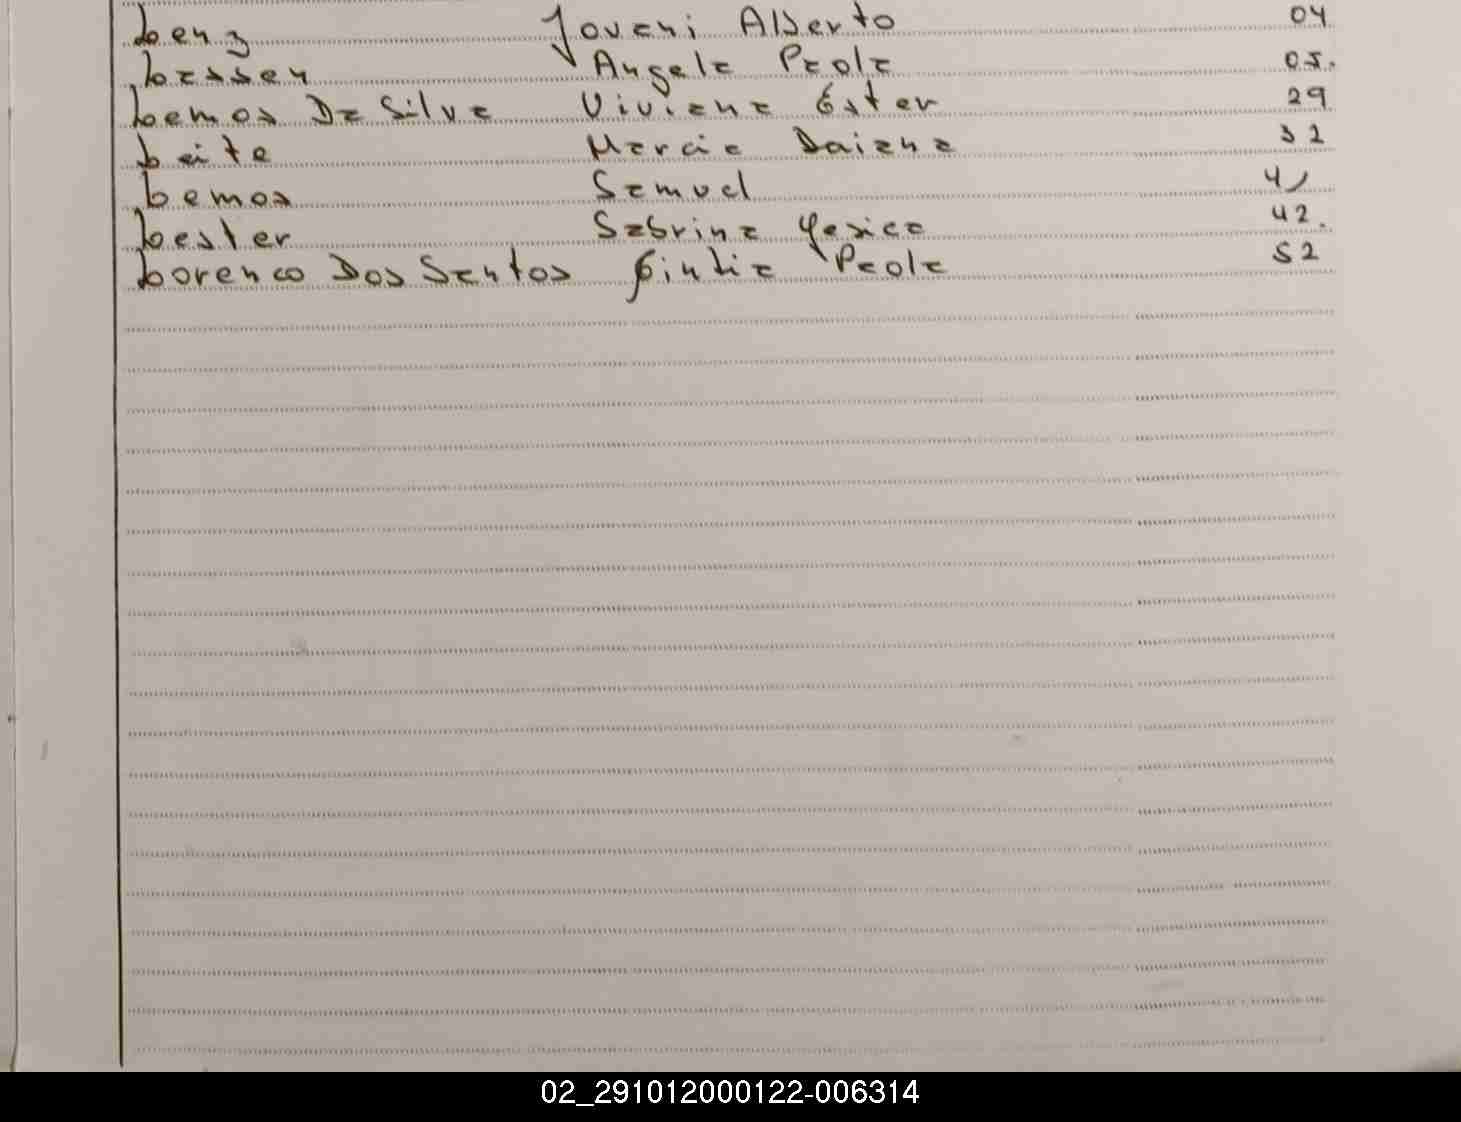 Lenz Jovani Alberto 04
Lassen Angela Paola 05.
Lemos Da Silva Viviana Ester 29
Leite Marcia Daiana 32
Lemos Samuel 41
Lester Sabrina Yesica 42.
Lorenco Dos Santos Cintia Paola 52
02_291012000122-006314